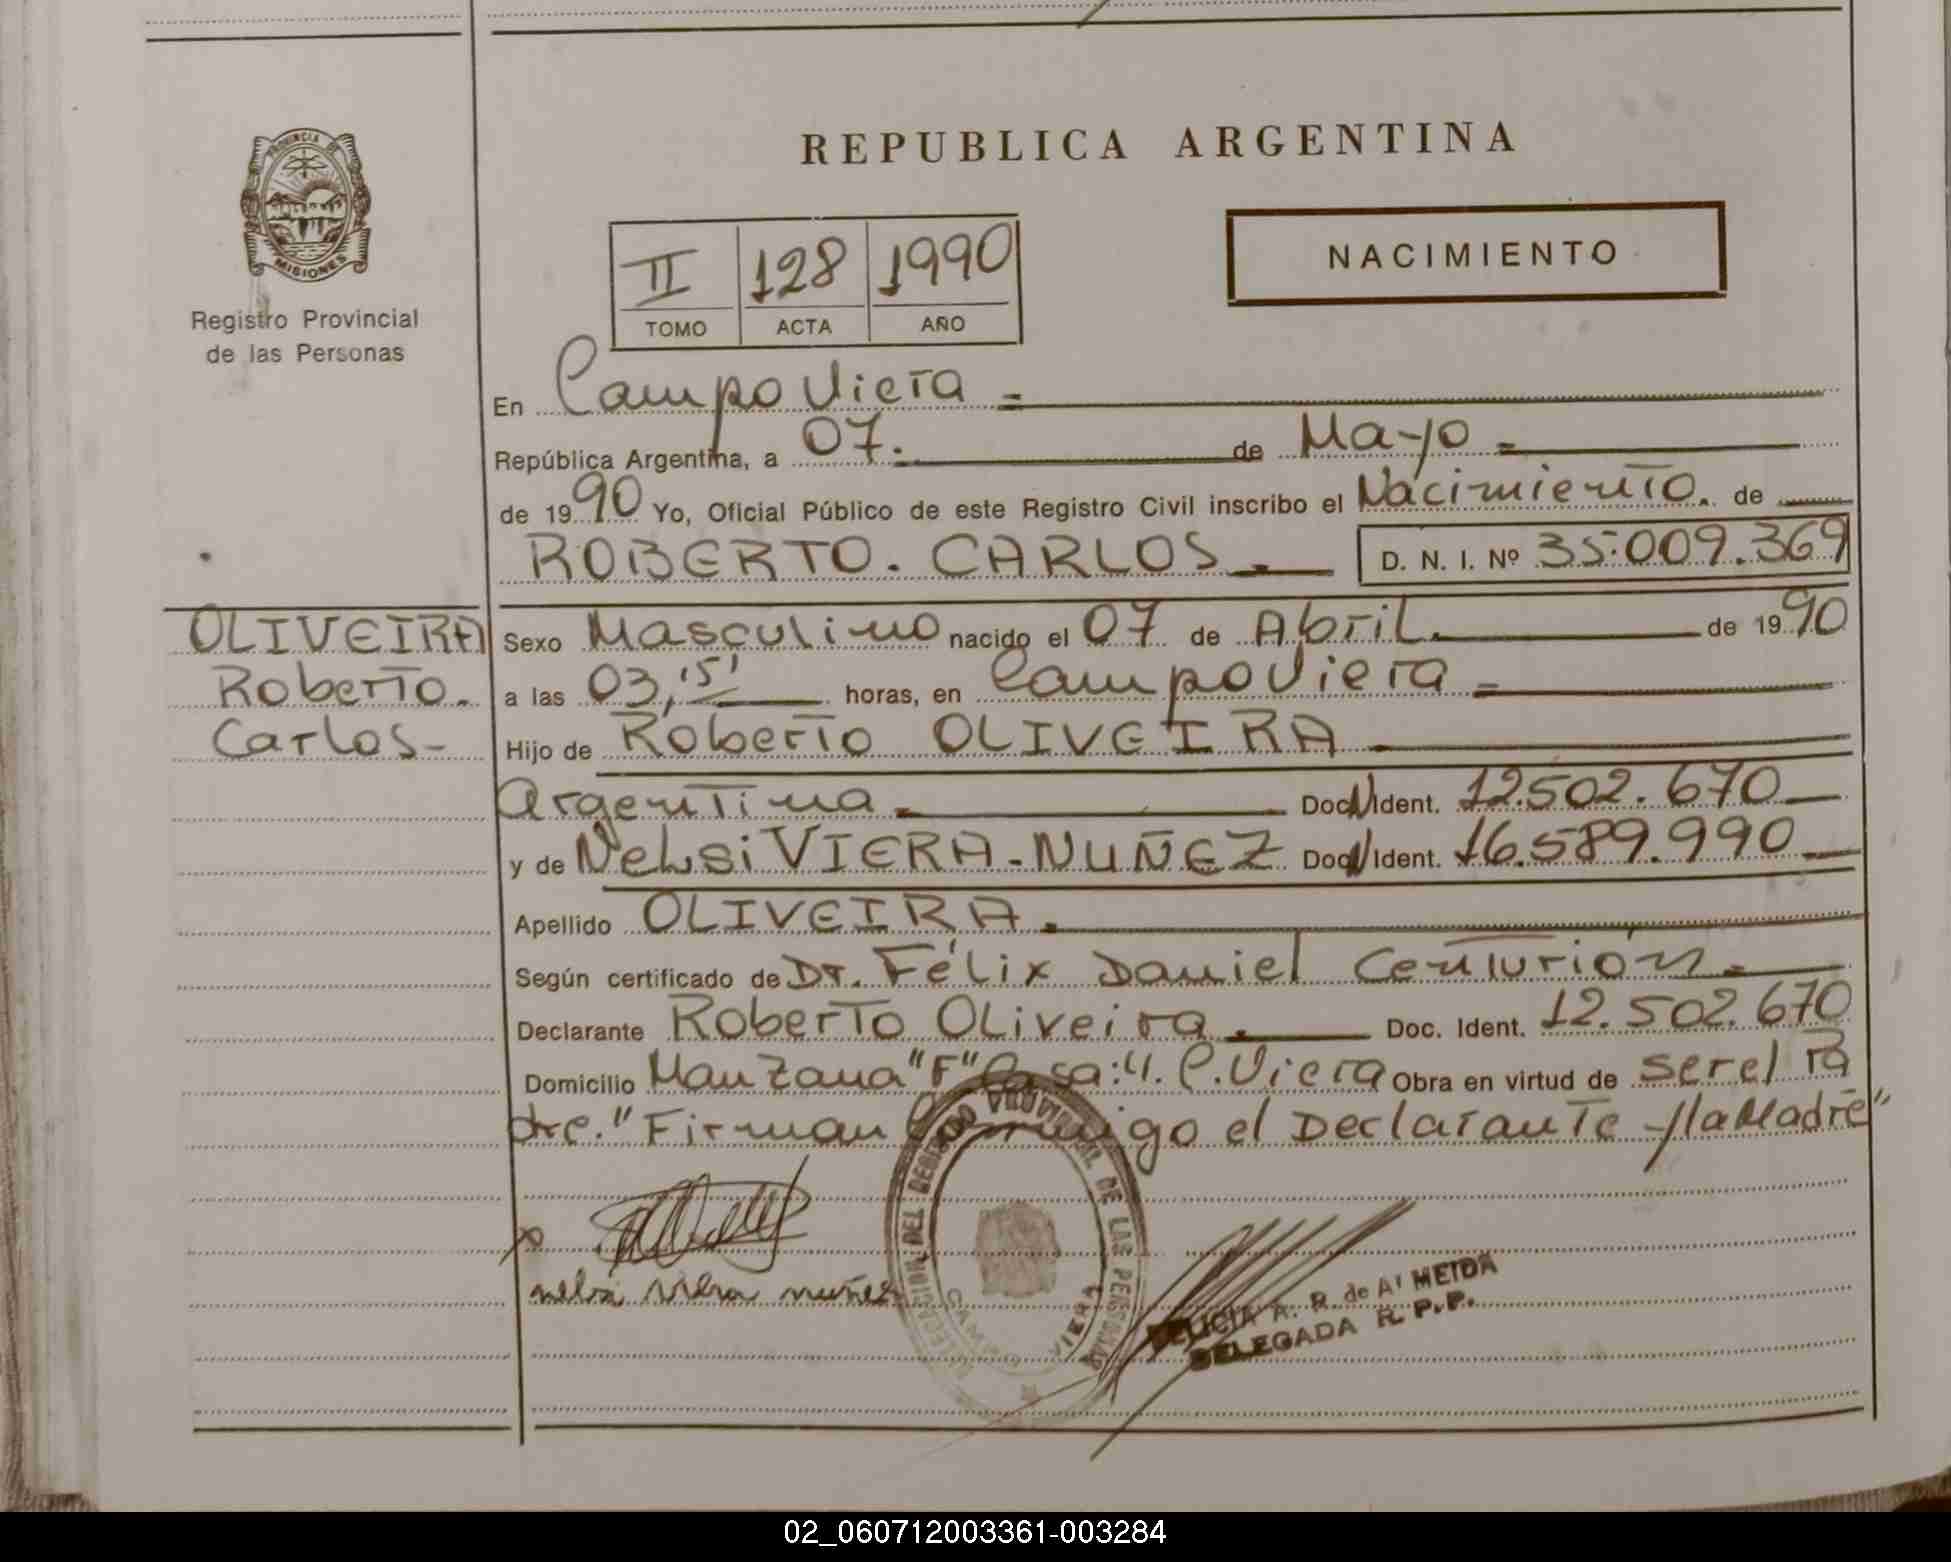 REPUBLICA ARGENTINA
PROVINCIA DE
MISIONES
Registro Provincial
de las Personas
II 128 1990
TOMO ACTA AÑO
NACIMIENTO
En Campo Viera
República Argentina, a 07. de Mayo
de 1990 Yo, Oficial Público de este Registro Civil inscribo el Nacimiento. de
ROBERTO. CARLOS D. N. I. Nº 35.009.369
OLIVEIRA
Roberto.
Carlos-
Sexo Masculino nacido el 07 de Abril de 1990
a las 03,15' horas, en Campo Viera
Hijo de Roberto OLIVEIRA
Argentina Doc. Ident. 12.502.670
y de Nelsi VIERA-NUÑEZ Doc. Ident. 16.589.990
Apellido OLIVEIRA.
Según certificado de Dr. Félix Daniel Centurión
Declarante Roberto Oliveira Doc. Ident. 12.502.670
Domicilio Manzana "F" Casa: 4. C. Viera Obra en virtud de ser el Pa
dre. "Firman Conmigo el Declarante y la Madre"
DELEGACION DEL REGISTRO PROVINCIAL DE LAS PERSONAS
CAMPO VIERA
nelsi viera nuñez
FELICIA A. R. de ALMEIDA
DELEGADA R. P. P.
02_060712003361-003284